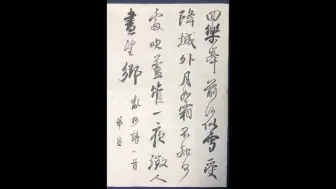 回樂峯前沙似雪受
降城外月如霜不知何
處吹蘆管一夜徵人
盡望鄉
詩一首